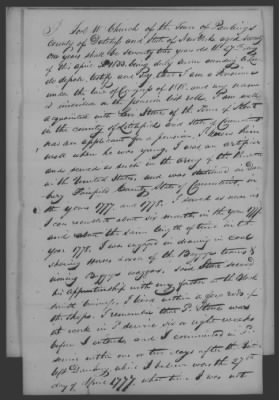 I Joel W Church of the Town of Pawlings
County of Dutchess and State of New York aged seventy
one years shall be seventy two years old the 27th day
of this April 1833 being duly sworn according to Law
do depose testify and say that I am a Pensioner
under the law of Congress of 1818, and my name
is inscribed on the pension list roll. I am well
acquainted with Stone of the Town of Kent
in the county of Litchfield and state of Connecticut
was an applicant for a pension, I knew him
well when he was young, I was an artificer
and served as such in the Army of the Revolution
in the United States, and was stationed in Dan
bury Fairfield County State of Connecticut in
the years 1777 and 1778. I served as near as
I can recollect about six months in the year 1777
and about the same length of time in the
year 1778. I was engaged in drawing in coal
shoeing horses down of the Baggage teams &
ironing Baggage waggons. Said Stone served
his apprenticeship with my father at the Black
smith business, I lived within a few rods of
the shops. I remember that Stone was
at work in service six or eight weeks
before I enlisted and I commenced in
service within one or two days after the
left Danbury which I believe was the 27th
day of April 1777 what time I was not